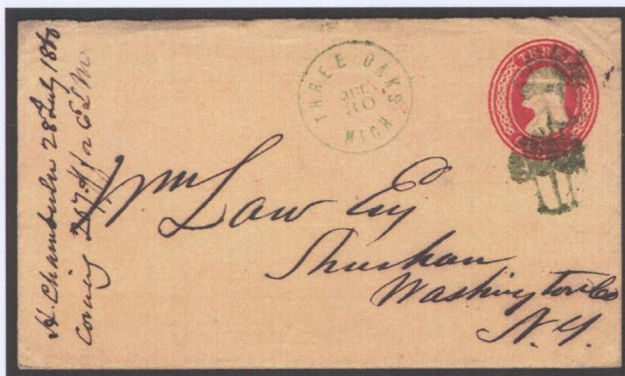 H. Chamberlin 28 July 18
THREE OAKS
JUL
30
MICH
THREE
Wm Law Esq
Shushan
Washington Co
N.Y.